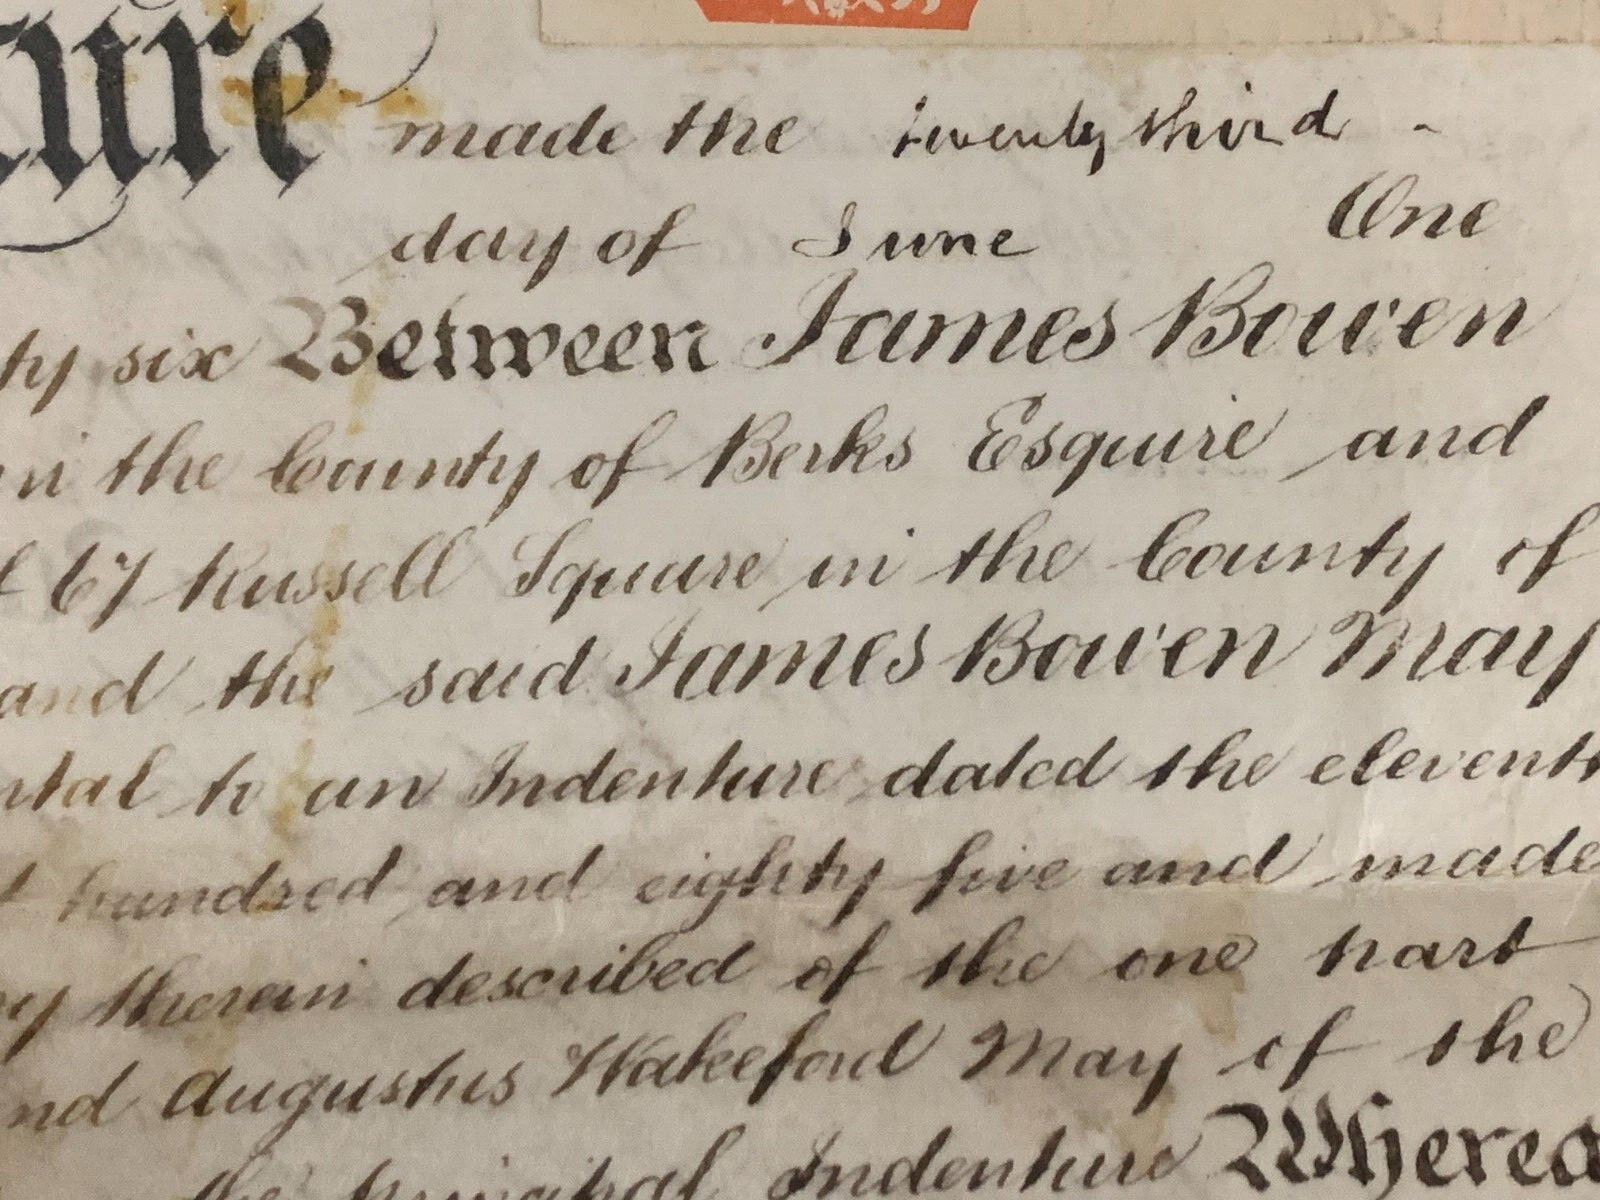 ture made the twenty third -
day of June One
ty six Between James Bowen
in the County of Berks Esquire and
67 Russell Square in the County of
and the said James Bowen May
ntal to an Indenture dated the eleventh
hundred and eighty five and made
therein described of the one part
nd Augustus Wakeford May of the
the principal Indenture Wherea